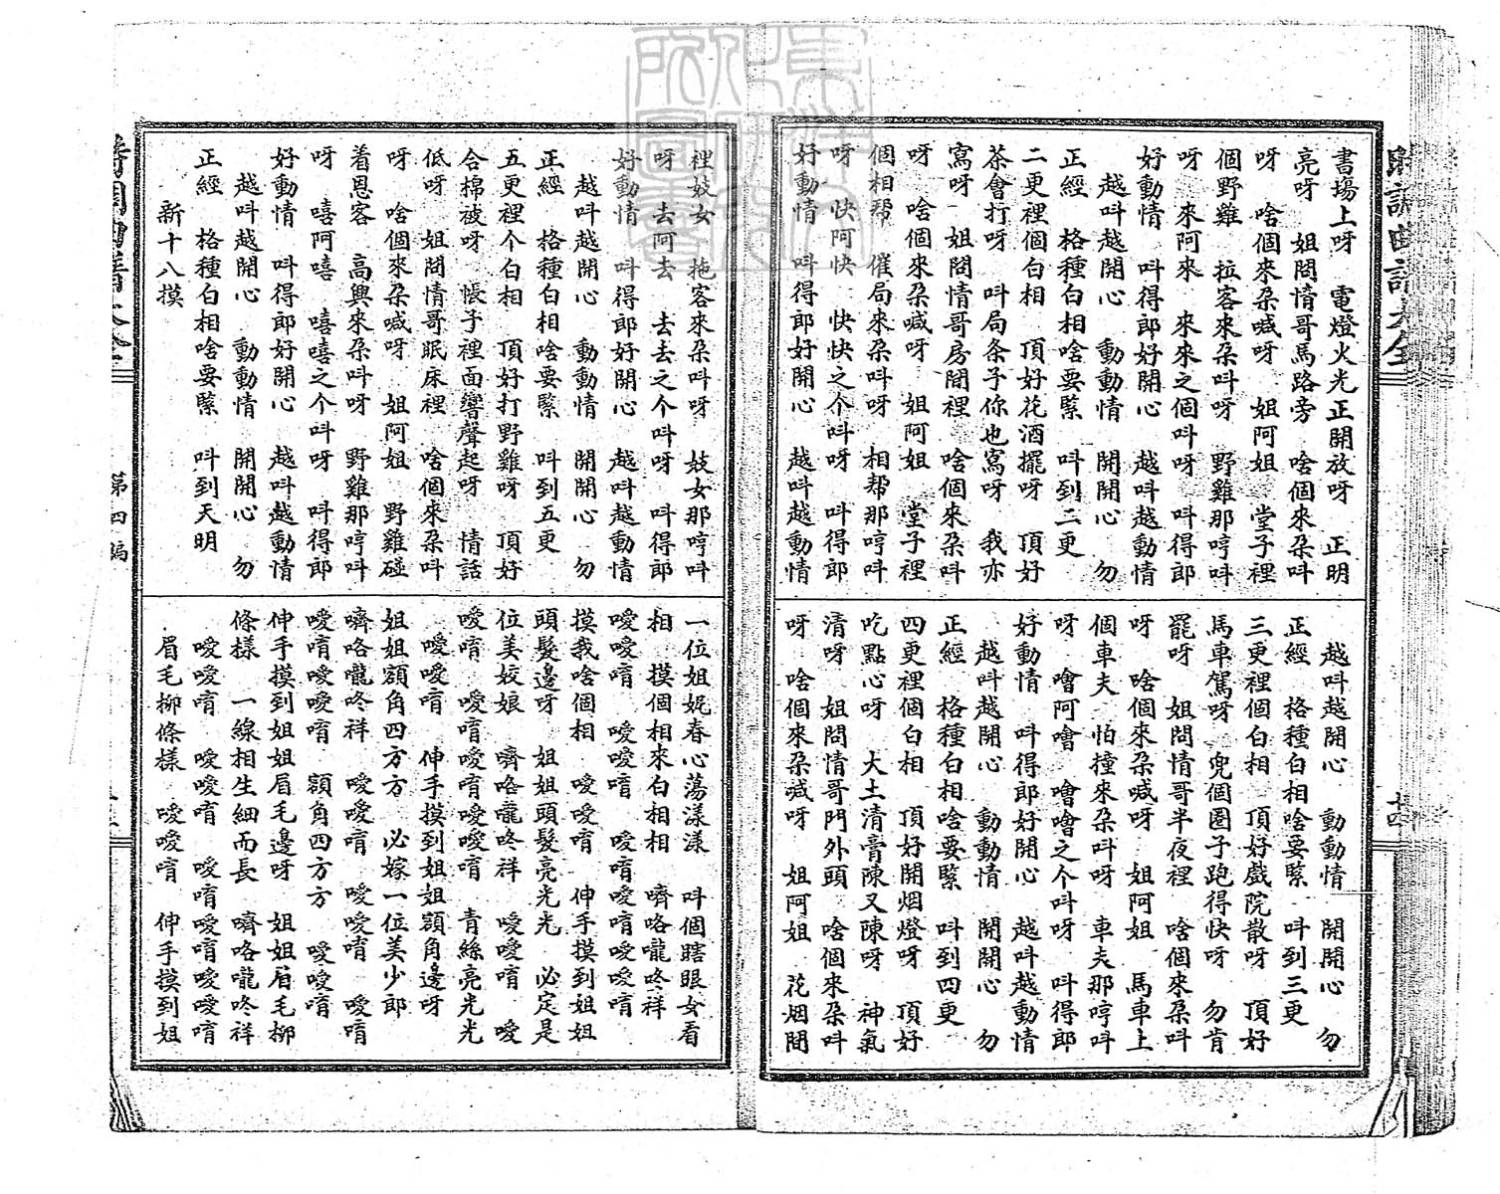 書場上呀　電燈火光正開放呀　正明
亮呀　姐問情哥馬路旁　啥個來朶呌
呀　啥個來朶喊呀　姐阿姐　堂子裡
個野雞　拉客來朶呌呀　野雞那哼呌
呀　來阿來　來來之個呌呀　呌得郎
好動情　呌得郎好開心　越呌越動情
越呌越開心　動動情　開開心　勿
正經　格種白相啥要緊　呌到二更
二更裡個白相　頂好花酒擺呀　頂好
茶會打呀　呌局条子你也寫呀　我亦
寫呀　姐問情哥房間裡　啥個來朶呌
呀　啥個來朶喊呀　姐阿姐　堂子裡
個相帮　催局來朶呌呀　相帮那哼呌
呀　快阿快　快快之个呌呀　呌得郎
好動情　呌得郎好開心　越呌越動情
越呌越開心　動動情　開開心　勿
正經　格種白相啥要緊　呌到三更
三更裡個白相　頂好戲院散呀　頂好
馬車駕呀　兜個圈子跑得快呀　勿肯
罷呀　姐問情哥半夜裡　啥個來朶呌
呀　啥個來朶喊呀　姐阿姐　馬車上
個車夫　怕撞來朶呌呀　車夫那哼呌
呀　噲阿噲　噲噲之个呌呀　呌得郎
好動情　呌得郎好開心　越呌越動情
越呌越開心　動動情　開開心　勿
正經　格種白相啥要緊　呌到四更
四更裡個白相　頂好開烟燈呀　頂好
吃點心呀　大土清膏陳又陳呀　神氣
清呀　姐問情哥門外頭　啥個來朶呌
呀　啥個來朶喊呀　姐阿姐　花烟間
裡妓女　拖客來朶呌呀　妓女那哼呌
呀　去阿去　去去之个呌呀　呌得郎
好動情　呌得郎好開心　越呌越動情
越呌越開心　動動情　開開心　勿
正經　格種白相啥要緊　呌到五更
五更裡个白相　頂好打野雞呀　頂好
合棉被呀　帳子裡面響聲起呀　情話
低呀　姐問情哥眠床裡　啥個來朶呌
呀　啥個來朶喊呀　姐阿姐　野雞碰
着恩客　高興來朶呌呀　野雞那哼呌
呀　嘻阿嘻　嘻嘻之个呌呀　呌得郎
好動情　呌得郎好開心　越呌越動情
越呌越開心　動動情　開開心　勿
正經　格種白相啥要緊　呌到天明
新十八摸
一位姐妮春心蕩漾漾　呌個瞎眼女看
相　摸個相來白相相　嚌咯嚨咚祥
噯噯唷　噯噯唷　噯唷噯唷噯噯唷
摸我啥個相　噯噯唷　伸手摸到姐姐
頭髮邊呀　姐姐頭髮亮光光　必定是
位美姣娘　嚌咯嚨咚祥　噯噯唷　噯
噯唷　噯唷噯唷噯噯唷　青絲亮光光
噯噯唷　伸手摸到姐姐額角邊呀
姐姐額角四方方　必嫁一位美少郎
嚌咯嚨咚祥　噯噯唷　噯噯唷　噯唷
噯唷噯噯唷　額角四方方　噯噯唷
伸手摸到姐姐眉毛邊呀　姐姐眉毛柳
條樣　一線相生細而長　嚌咯嚨咚祥
噯噯唷　噯噯唷　噯唷噯唷噯噯唷
眉毛柳條樣　噯噯唷　伸手摸到姐
第四編